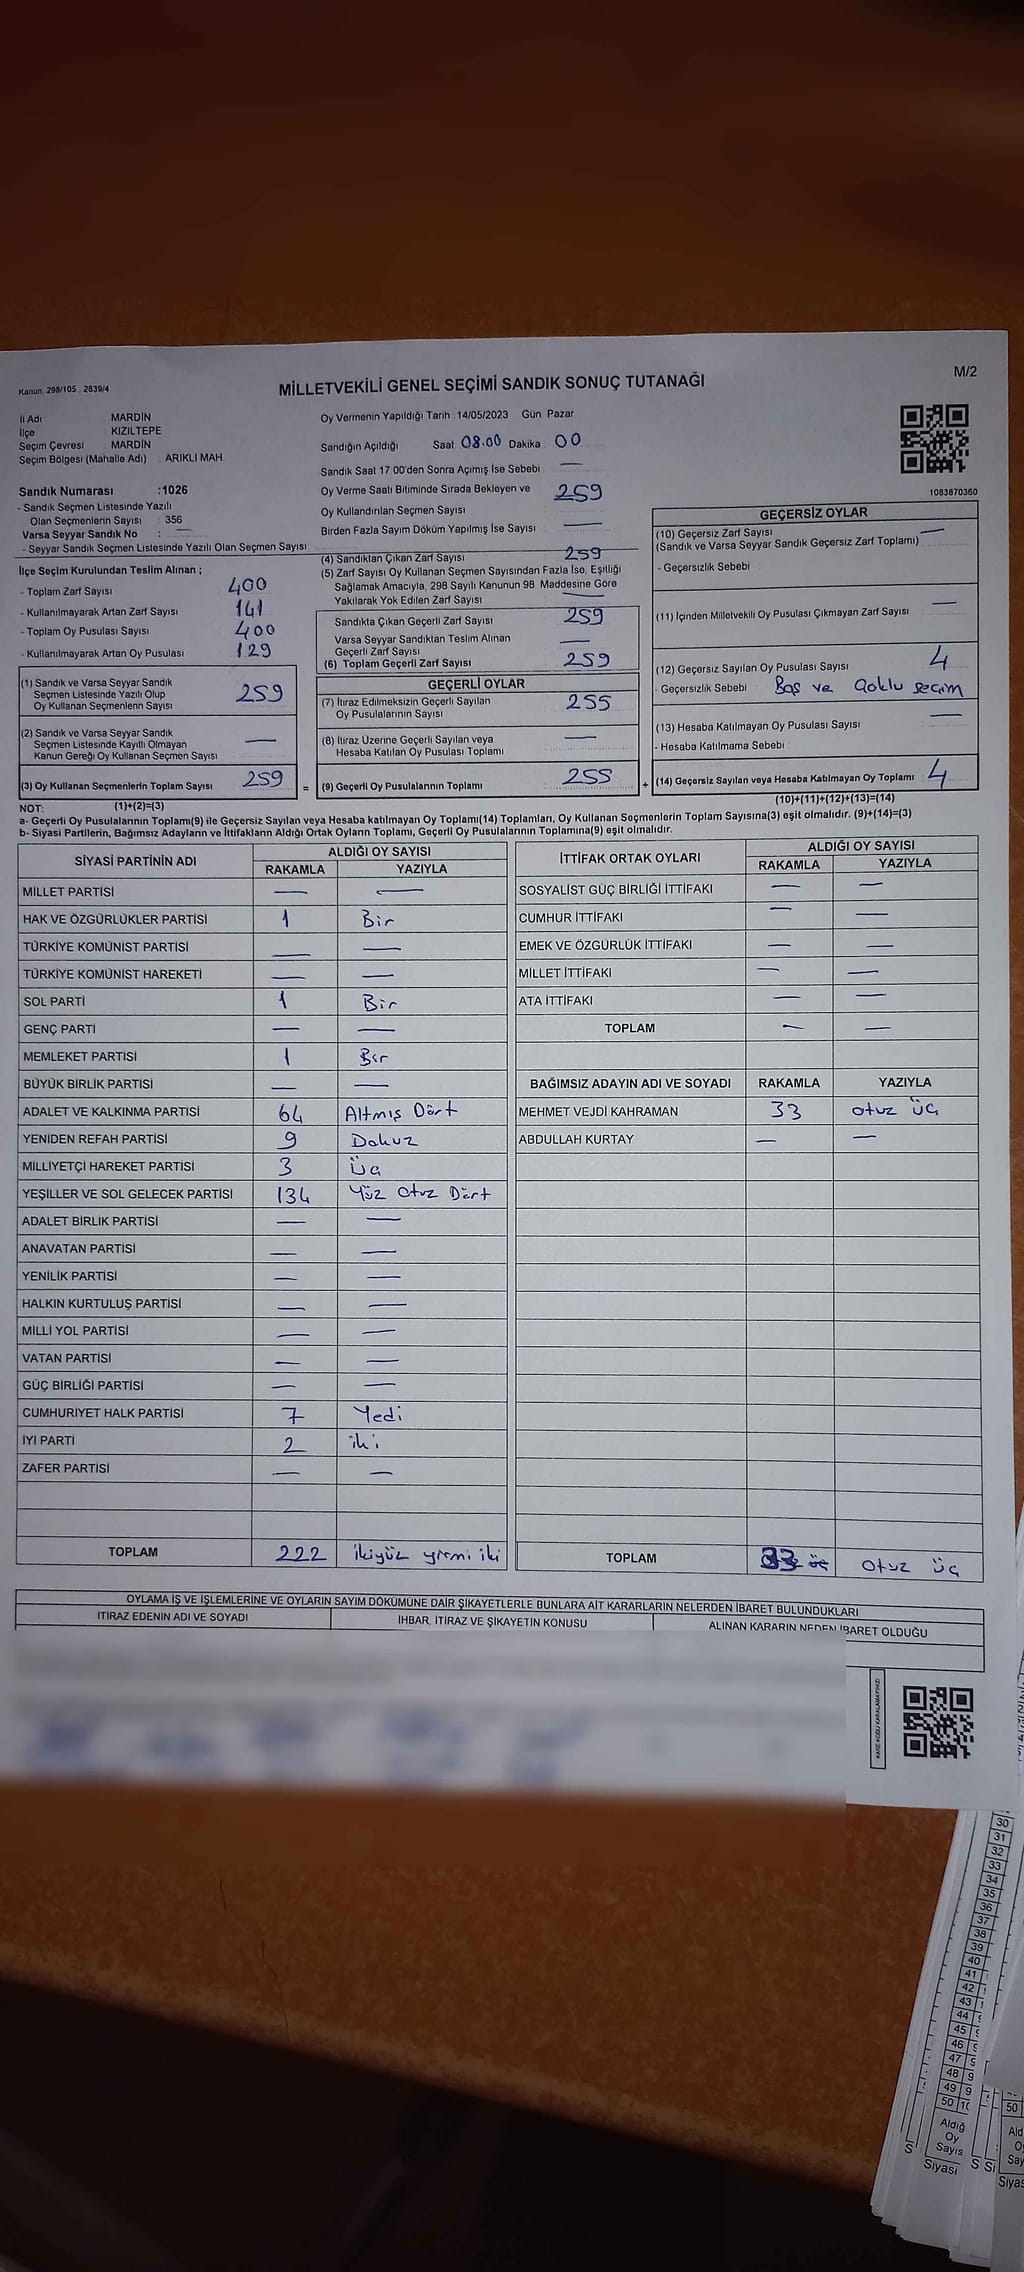 Kanun 298/105 , 2839/4
MİLLETVEKİLİ GENEL SEÇİMİ SANDIK SONUÇ TUTANAĞI
M/2
İl Adı MARDİN
İlçe KIZILTEPE
Seçim Çevresi MARDİN
Seçim Bölgesi (Mahalle Adı) ARIKLI MAH
Sandık Numarası :1026
- Sandık Seçmen Listesinde Yazılı
Olan Seçmenlerin Sayısı : 356
Varsa Seyyar Sandık No : —
- Seyyar Sandık Seçmen Listesinde Yazılı Olan Seçmen Sayısı
İlçe Seçim Kurulundan Teslim Alınan ;
- Toplam Zarf Sayısı 400
- Kullanılmayarak Artan Zarf Sayısı 141
- Toplam Oy Pusulası Sayısı 400
- Kullanılmayarak Artan Oy Pusulası 129
(1) Sandık ve Varsa Seyyar Sandık
Seçmen Listesinde Yazılı Olup
Oy Kullanan Seçmenlerin Sayısı 259
(2) Sandık ve Varsa Seyyar Sandık
Seçmen Listesinde Kayıtlı Olmayan
Kanun Gereği Oy Kullanan Seçmen Sayısı —
(3) Oy Kullanan Seçmenlerin Toplam Sayısı 259 =
(1)+(2)=(3)
Oy Vermenin Yapıldığı Tarih 14/05/2023 Gün Pazar
Sandığın Açıldığı Saat 08.00 Dakika 00
Sandık Saat 17 00'den Sonra Açımış İse Sebebi —
Oy Verme Saati Bitiminde Sırada Bekleyen ve
Oy Kullandırılan Seçmen Sayısı 259
Birden Fazla Sayım Döküm Yapılmış İse Sayısı —
(4) Sandıktan Çıkan Zarf Sayısı 259
(5) Zarf Sayısı Oy Kullanan Seçmen Sayısından Fazla İso, Eşitliği
Sağlamak Amacıyla, 298 Sayılı Kanunun 98 Maddesine Göre
Yakılarak Yok Edilen Zarf Sayısı —
Sandıkta Çıkan Geçerli Zarf Sayısı 259
Varsa Seyyar Sandıktan Teslim Alınan
Geçerli Zarf Sayısı —
(6) Toplam Geçerli Zarf Sayısı 259
GEÇERLİ OYLAR
(7) İtiraz Edilmeksizin Geçerli Sayılan
Oy Pusulalarının Sayısı 255
(8) İtiraz Üzerine Geçerli Sayılan veya
Hesaba Katılan Oy Pusulası Toplamı —
(9) Geçerli Oy Pusulalarının Toplamı 255 +
1083870360
GEÇERSİZ OYLAR
(10) Geçersiz Zarf Sayısı —
(Sandık ve Varsa Seyyar Sandık Geçersiz Zarf Toplamı)
- Geçersizlik Sebebi
(11) İçinden Milletvekili Oy Pusulası Çıkmayan Zarf Sayısı —
(12) Geçersiz Sayılan Oy Pusulası Sayısı 4
- Geçersizlik Sebebi Boş ve Çoklu seçim
(13) Hesaba Katılmayan Oy Pusulası Sayısı —
- Hesaba Katılmama Sebebi
(14) Geçersiz Sayılan veya Hesaba Katılmayan Oy Toplamı 4
(10)+(11)+(12)+(13)=(14)
NOT:
a- Geçerli Oy Pusulalarının Toplamı(9) ile Geçersiz Sayılan veya Hesaba katılmayan Oy Toplamı(14) Toplamları, Oy Kullanan Seçmenlerin Toplam Sayısına(3) eşit olmalıdır. (9)+(14)=(3)
b- Siyasi Partilerin, Bağımsız Adayların ve İttifakların Aldığı Ortak Oyların Toplamı, Geçerli Oy Pusulalarının Toplamına(9) eşit olmalıdır.
SİYASİ PARTİNİN ADI ALDIĞI OY SAYISI
RAKAMLA YAZIYLA
MİLLET PARTİSİ — —
HAK VE ÖZGÜRLÜKLER PARTİSİ 1 Bir
TÜRKİYE KOMÜNİST PARTİSİ — —
TÜRKİYE KOMÜNİST HAREKETİ — —
SOL PARTİ 1 Bir
GENÇ PARTİ — —
MEMLEKET PARTİSİ 1 Bir
BÜYÜK BİRLİK PARTİSİ — —
ADALET VE KALKINMA PARTİSİ 64 Altmış Dört
YENİDEN REFAH PARTİSİ 9 Dokuz
MİLLİYETÇİ HAREKET PARTİSİ 3 Üç
YEŞİLLER VE SOL GELECEK PARTİSİ 134 Yüz Otuz Dört
ADALET BİRLİK PARTİSİ — —
ANAVATAN PARTİSİ — —
YENİLİK PARTİSİ — —
HALKIN KURTULUŞ PARTİSİ — —
MİLLİ YOL PARTİSİ — —
VATAN PARTİSİ — —
GÜÇ BİRLİĞİ PARTİSİ — —
CUMHURİYET HALK PARTİSİ 7 Yedi
İYİ PARTİ 2 iki
ZAFER PARTİSİ — —
TOPLAM 222 ikiyüz yirmi iki
İTTİFAK ORTAK OYLARI ALDIĞI OY SAYISI
RAKAMLA YAZIYLA
SOSYALİST GÜÇ BİRLİĞİ İTTİFAKI — —
CUMHUR İTTİFAKI — —
EMEK VE ÖZGÜRLÜK İTTİFAKI — —
MİLLET İTTİFAKI — —
ATA İTTİFAKI — —
TOPLAM — —
BAĞIMSIZ ADAYIN ADI VE SOYADI RAKAMLA YAZIYLA
MEHMET VEJDİ KAHRAMAN 33 otuz üç
ABDULLAH KURTAY — —
TOPLAM 33 otuz üç
OYLAMA İŞ VE İŞLEMLERİNE VE OYLARIN SAYIM DÖKÜMÜNE DAİR ŞİKAYETLERLE BUNLARA AİT KARARLARIN NELERDEN İBARET BULUNDUKLARI
İTİRAZ EDENİN ADI VE SOYADI İHBAR, İTİRAZ VE ŞİKAYETİN KONUSU ALINAN KARARIN NEDEN İBARET OLDUĞU
30
31
32
33
34
35
36
37
38
39
40
41
42
43
44
45
46
47
48
49
50
Aldığı
Oy
Sayıs
Siyasi
50